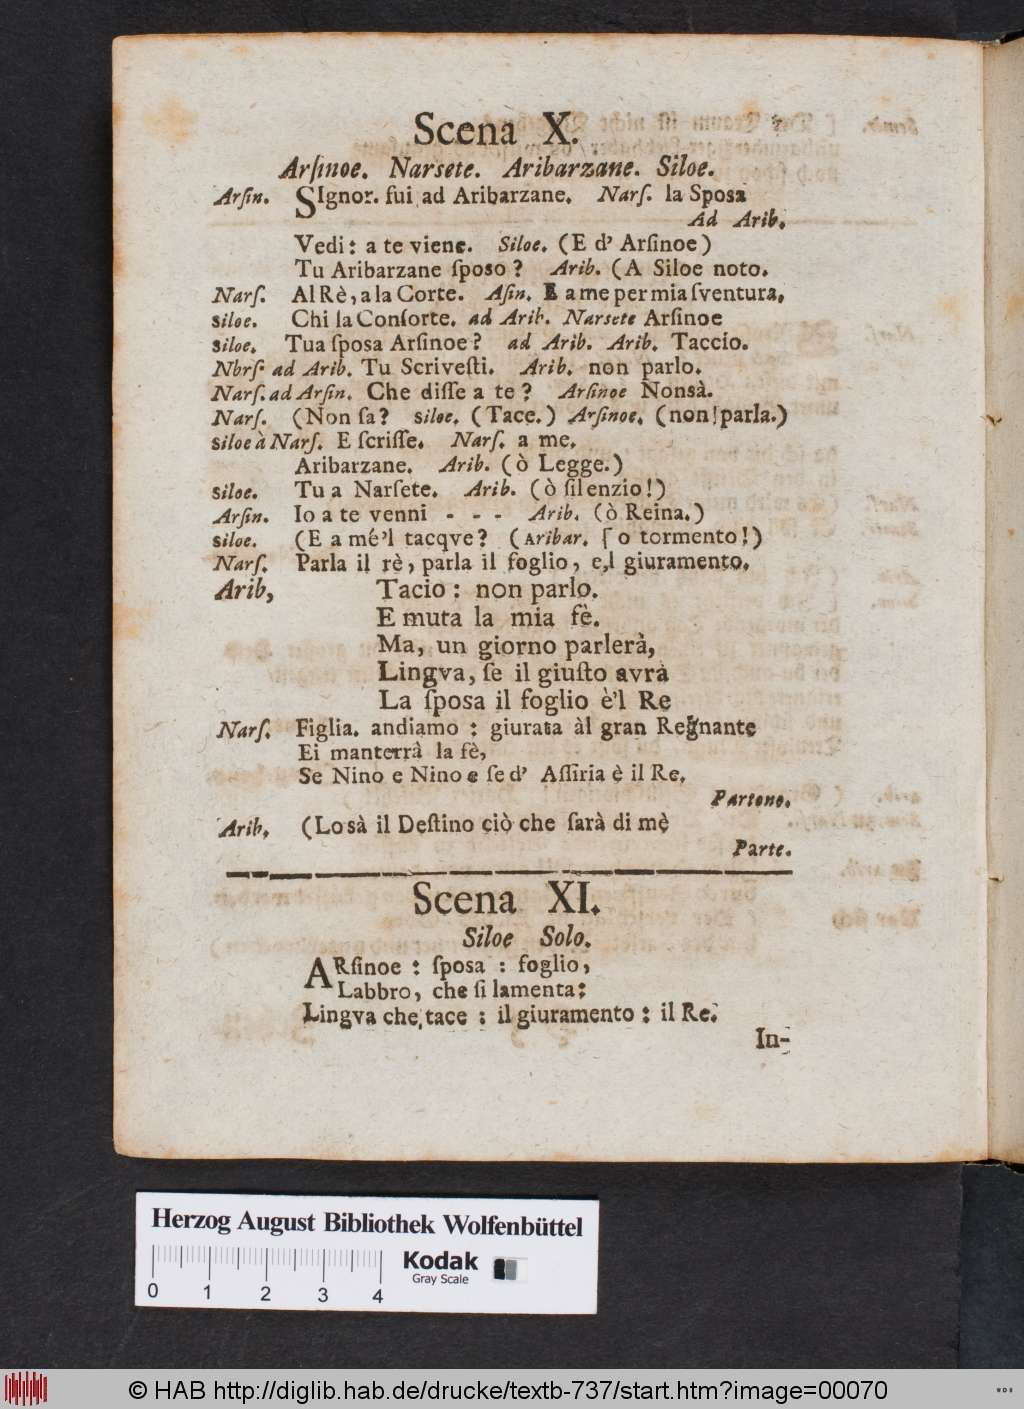 Scena X.
Arſinoe. Narsete. Aribarzane. Siloe.
Arſin. SIgnor. fui ad Aribarzane. Narſ. la Sposa
Ad Arib.
Vedi: a te viene. Siloe. (E d' Arſinoe)
Tu Aribarzane ſposo? Arib. (A Siloe noto.
Narſ. Al Rè, a la Corte. Aſin. E a me per mia ſventura.
siloe. Chi la Conſorte. ad Arib. Narsete Arſinoe
siloe. Tua ſposa Arſinoe? ad Arib. Arib. Taccio.
Nbrſ. ad Arib. Tu Scriveſti. Arib. non parlo.
Narſ. ad Arſin. Che diſſe a te? Arſinoe Nonsà.
Narſ. (Non ſa? siloe. (Tace.) Arſinoe. (non! parla.)
siloe à Narſ. E ſcriſſe. Narſ. a me.
Aribarzane. Arib. (ò Legge.)
siloe. Tu a Narſete. Arib. (ò ſilenzio!)
Arſin. Io a te venni - - - Arib. (ò Reina.)
siloe. (E a mé'l tacqve? (Aribar. ſo tormento!)
Narſ. Parla il rè, parla il foglio, e,l giuramento.
Arib, Tacio: non parlo.
E muta la mia fè.
Ma, un giorno parlerà,
Lingva, ſe il giuſto avrà
La ſposa il foglio è'l Re
Narſ. Figlia. andiamo: giurata àl gran Regnante
Ei manterrà la fè,
Se Nino e Nino e ſe d' Aſſiria è il Re.
Partono.
Arib. (Lo sà il Deſtino ciò che ſarà di mè
Parte.
Scena XI.
Siloe Solo.
ARſinoe: ſposa: foglio,
Labbro, che ſi lamenta:
Lingva che tace: il giuramento: il Re.
In-
Herzog August Bibliothek Wolfenbüttel
0 1 2 3 4
Kodak
Gray Scale
© HAB http://diglib.hab.de/drucke/textb-737/start.htm?image=00070